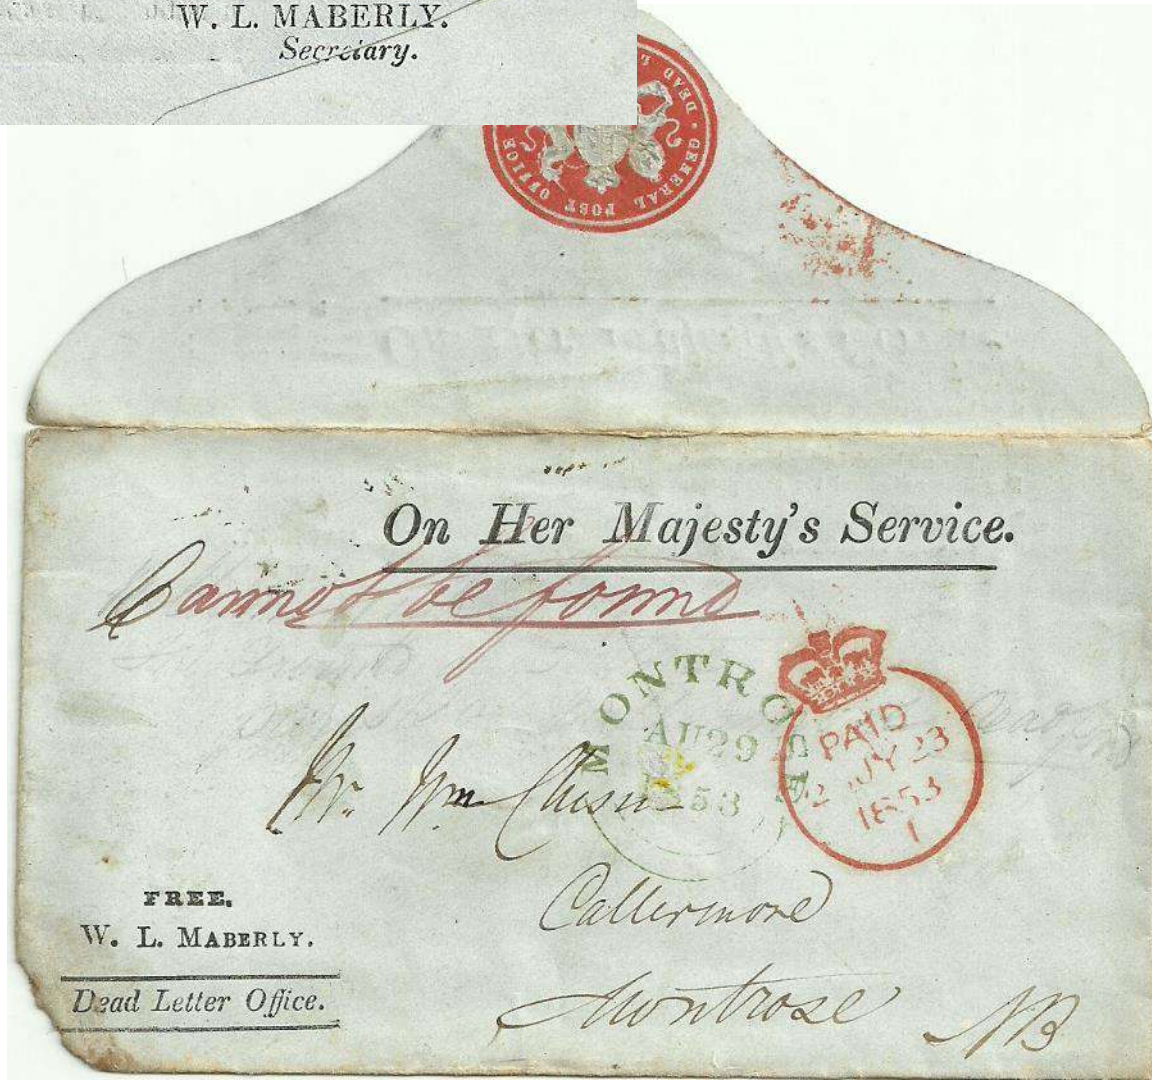 W. L. MABERLY.
Secretary.
DEAD
GENERAL POST OFFICE
On Her Majesty's Service.
Cannot be found
MONTROSE
AU29
1853
PAID
2 JY 23
1853
1
Mr. Wm
Callermore
Montrose NB
FREE.
W. L. MABERLY.
Dead Letter Office.